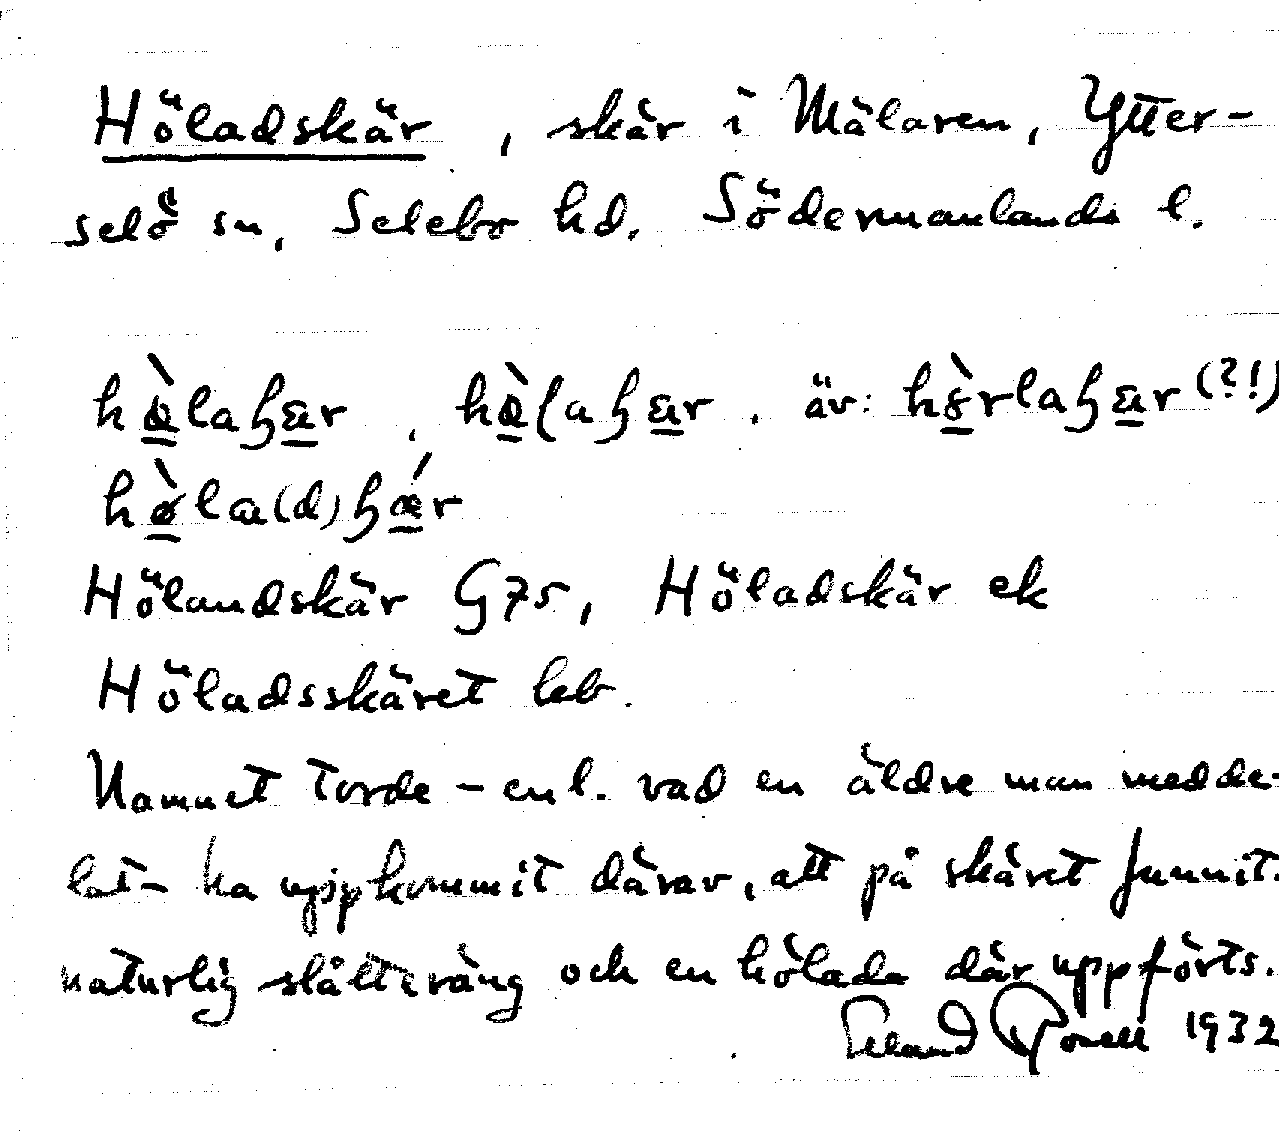 Höladskär, skär i Mälaren, Ytter-
selö sn, Selebo hd. Södermanlands l.
hæ̀laꞕær, hæ̀ɭaꞕær. äv: hɞ̀rlaꞕær (?!)
hø̀la(d)ꞕǽr
Hölandskär G75, Höladskär ek
Höladsskäret leb.
Namnet torde - enl. vad en äldre man medde-
lat - ha uppkommit därav, att på skäret funnit.
naturlig slåtteräng och en hölada där uppförts.
1932